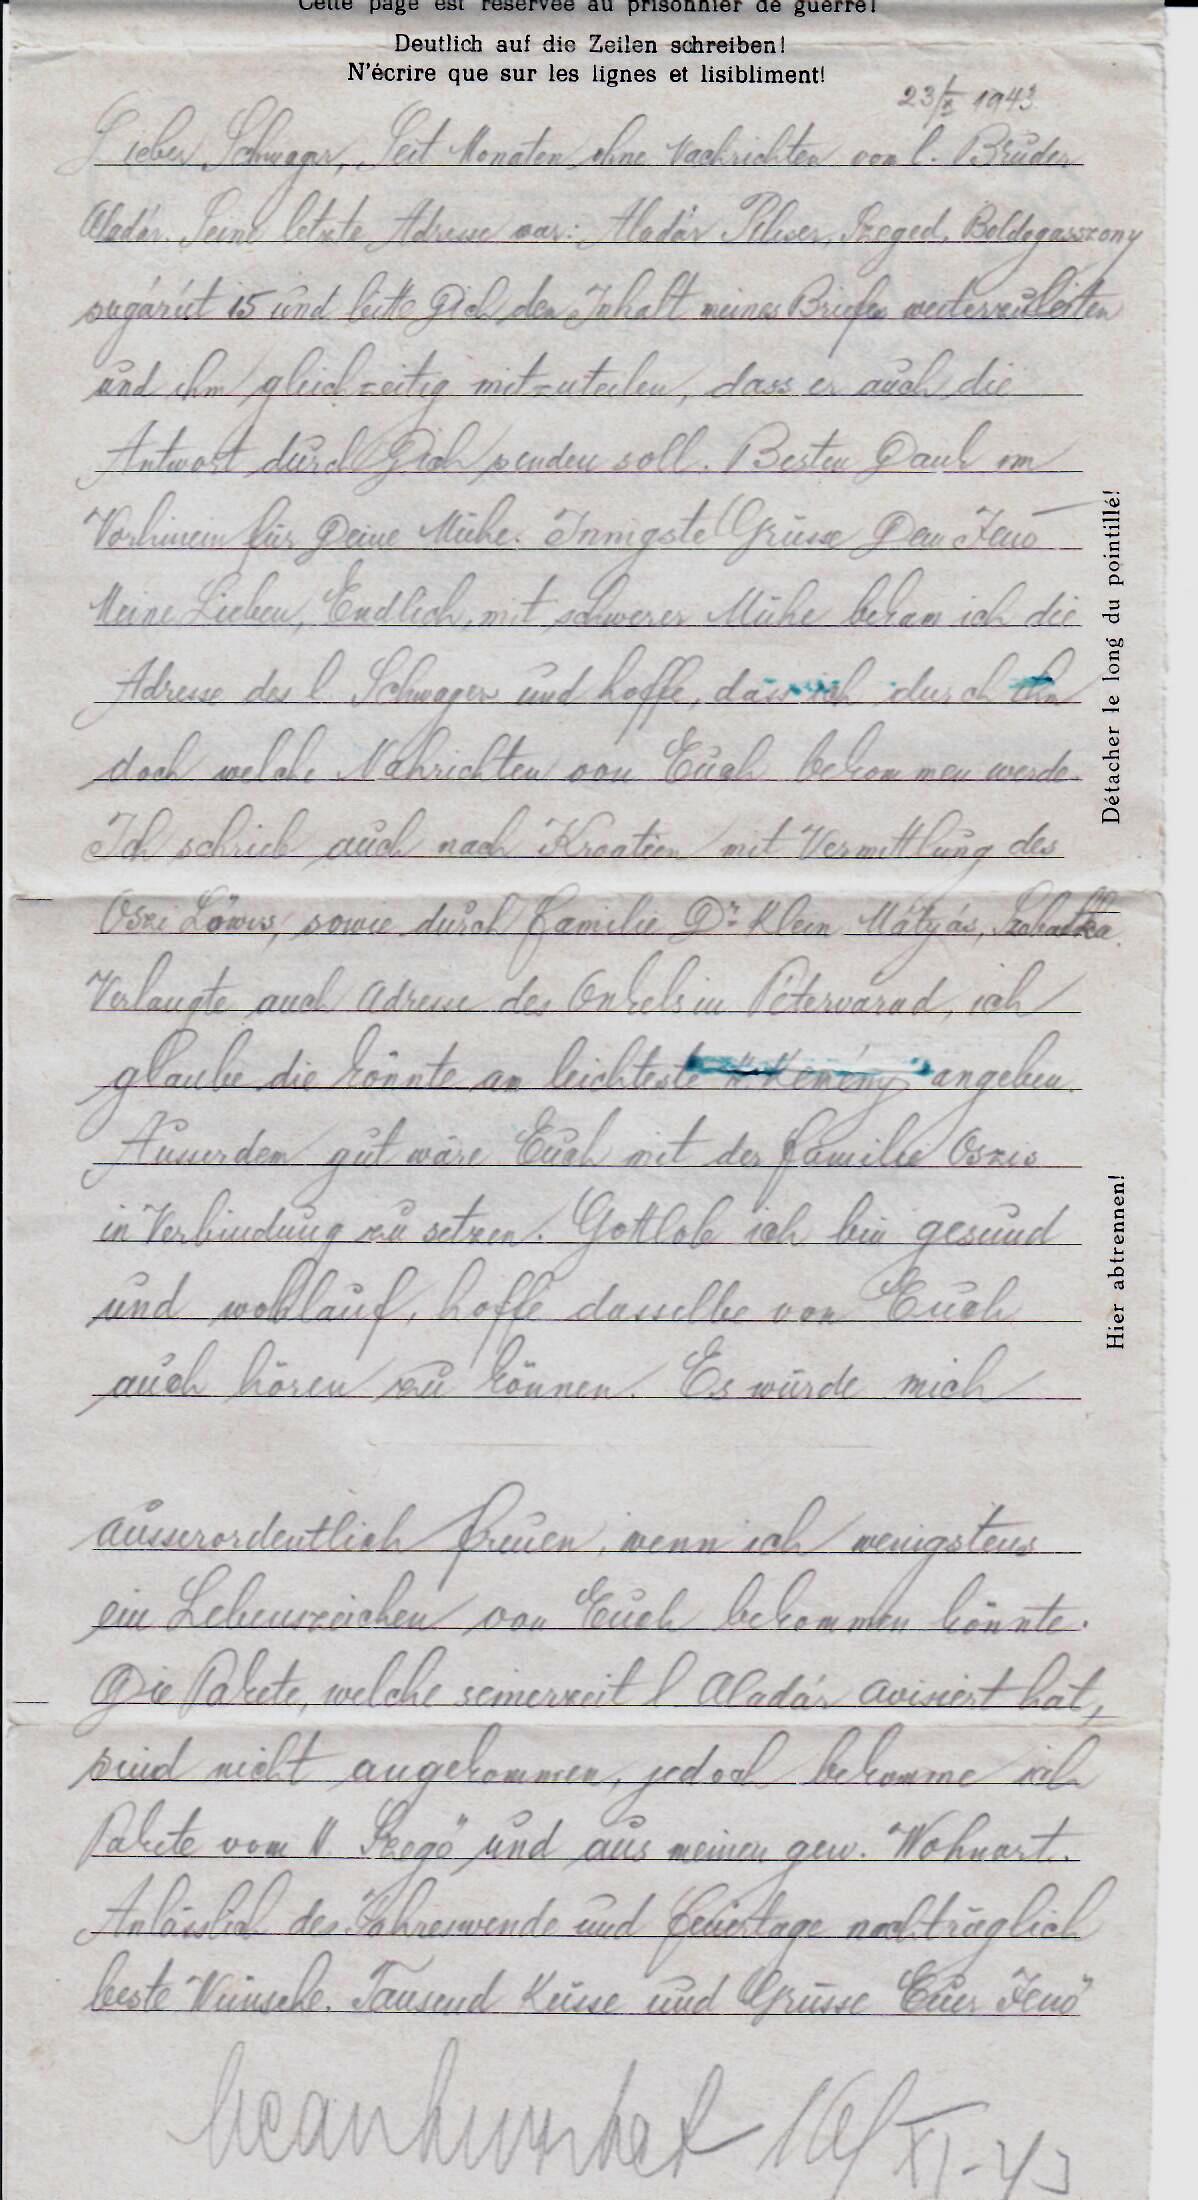 Cette page est réservée au prisonnier de guerre!
Deutlich auf die Zeilen schreiben!
N'écrire que sur les lignes et lisibliment!
23/X 1943
Lieber Schwager, Seit Monaten ohne Nachrichten vom l. Bruder
Aladár. Seine letzte Adresse war: Aladár Pilser, Szeged, Boldogasszony
sugárút 15 und bitte Dich den Inhalt meines Briefes weiterzuleiten
und ihm gleichzeitig mitzuteilen, dass er auch die
Antwort durch Dich senden soll. Besten Dank im
Vorhinein für Deine Mühe. Innigste Grüsse Dein Jenö
Meine Lieben, Endlich, mit schwerer Mühe bekam ich die
Adresse des l Schwagers und hoffe, dass ich durch ihn
doch welche Nahrichten von Euch bekommen werde.
Ich schrieb auch nach Kroatien mit Vermittlung des
Oszi Löwis, sowie durch Familie Dr Klein Mátyás, Szabatka.
Verlangte auch Adresse des Onkels in Pétervarad, ich
glaube die könnte am leichteste Kemény angeben.
Ausserdem gut wäre Euch mit der Familie Oszis
in Verbindung zu setzen. Gottlob ich bin gesund
und wohlauf, hoffe dasselbe von Euch
auch hören zu können. Es würde mich
ausserordentlich freuen, wenn ich wenigstens
ein Lebenszeichen von Euch bekommen könnte.
Die Pakete, welche seinerzeit l Aladár avisiert hat,
sind nicht angekommen, jedoch bekomme ich
Pakete vom Szegö und aus meinen gew. Wohnort.
Anlässlich des Jahreswende und Feiertage nachträglich
beste Wünsche. Tausend Küsse und Grüsse Euer Jenö
beantwortet XI-43
Détacher le long du pointillé!
Hier abtrennen!